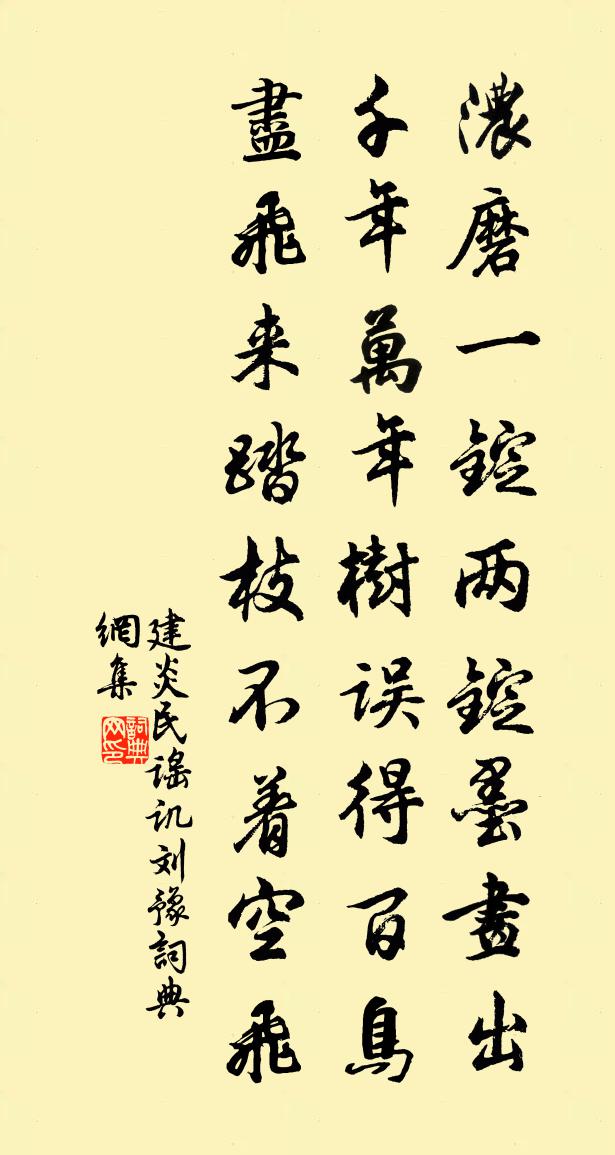 濃磨一錠两錠墨畫出
千年萬年樹误得百鳥
盡飛来踏枝不着空飛
建炎民謡讥刘豫詞典
網集
詞典網印